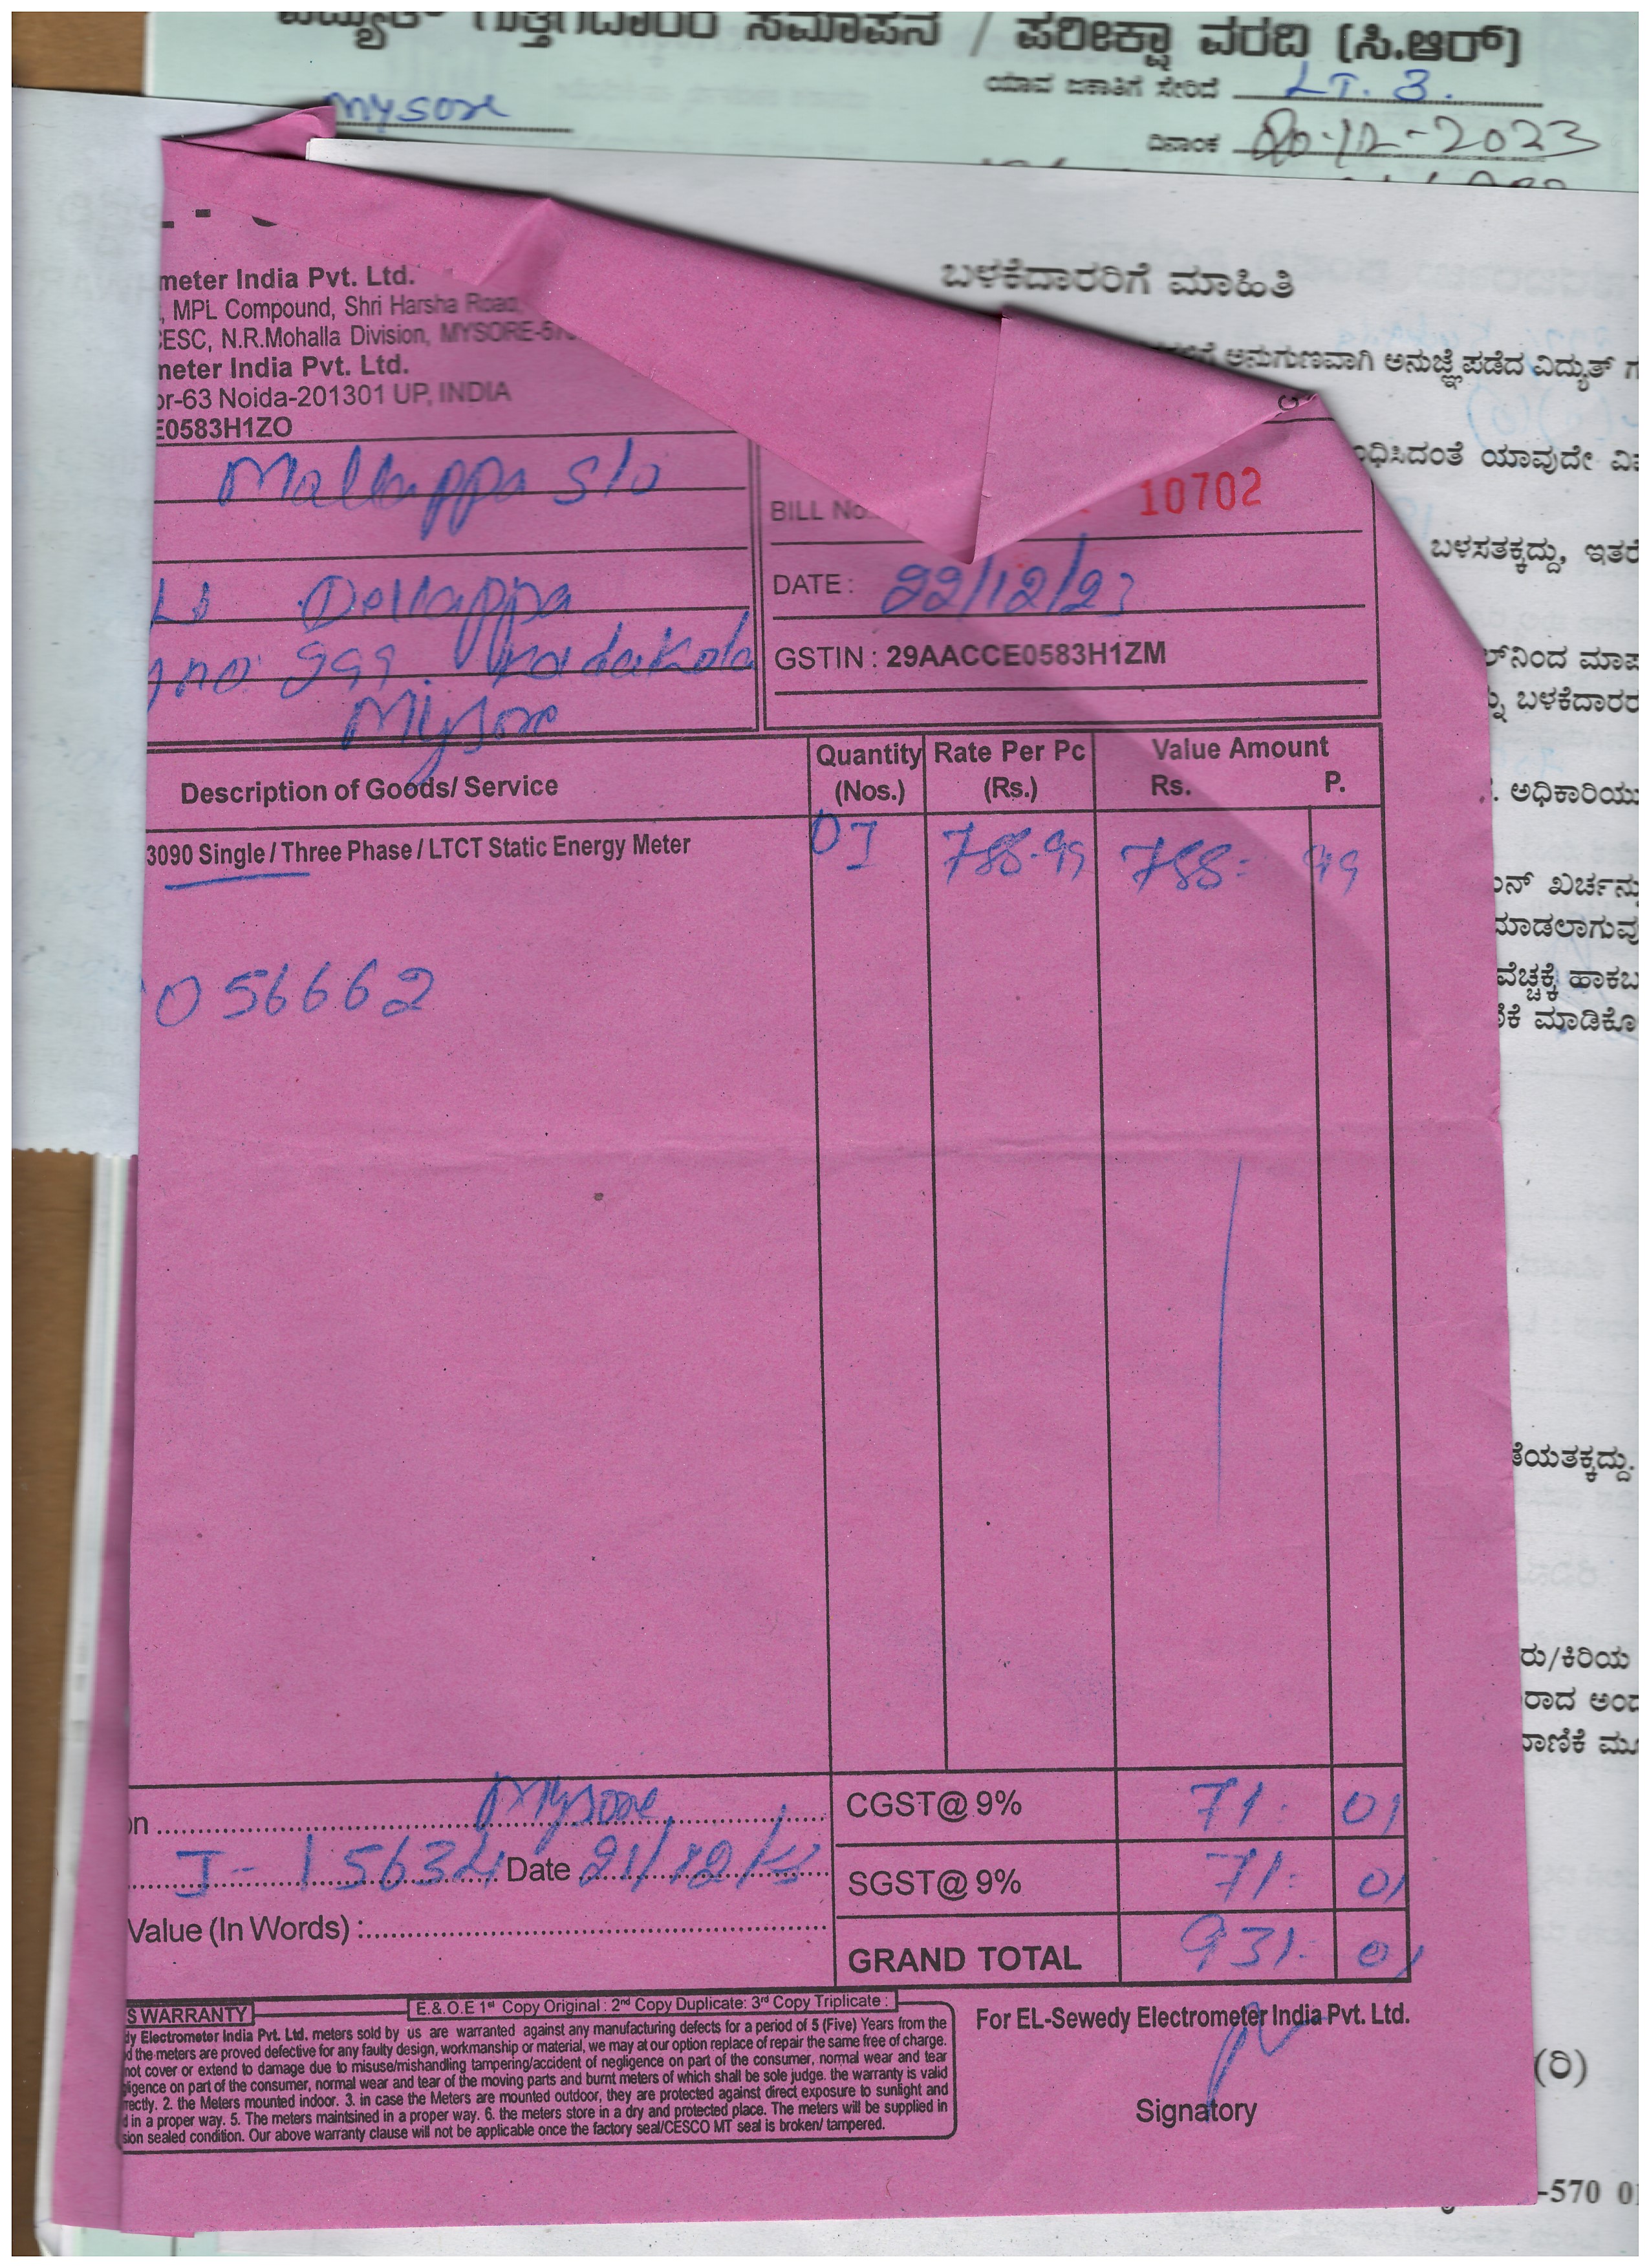 ವಿದ್ಯುತ್ ಗುತ್ತಿಗೆದಾರರ ಸಮಾಪನ / ಪರೀಕ್ಷಾ ವರದಿ (ಸಿ.ಆರ್)
ಯಾವ ಜಕಾತಿಗೆ ಸೇರಿದೆ LT. 3.
Mysore
ದಿನಾಂಕ 20-12-2023
ಬಳಕೆದಾರರಿಗೆ ಮಾಹಿತಿ
ಅನುಗುಣವಾಗಿ ಅನುಜ್ಞೆ ಪಡೆದ ವಿದ್ಯುತ್ ಗ
ಧಿಸಿದಂತೆ ಯಾವುದೇ ವಿ
ಬಳಸತಕ್ಕದ್ದು, ಇತರೆ
ಲ್‌ನಿಂದ ಮಾಪ
ಬಳಕೆದಾರರ
ಅಧಿಕಾರಿಯು
ನ್ ಖರ್ಚನ್ನು
ಮಾಡಲಾಗುವು
ವೆಚ್ಚಕ್ಕೆ ಹಾಕಬ
ಕೆ ಮಾಡಿಕೊ
ತೆಯತಕ್ಕದ್ದು.
ರು/ಕಿರಿಯ
ರಾದ ಅಂದ
ವಾಣಿಕೆ ಮೂ
(ರಿ)
-570 01
meter India Pvt. Ltd.
, MPL Compound, Shri Harsha Road,
CESC, N.R.Mohalla Division, MYSORE-570
meter India Pvt. Ltd.
or-63 Noida-201301 UP, INDIA
E0583H1ZO
Mallappa S/o
Dellappa
no: 999. Kadakola
Mysore
BILL No. 10702
DATE : 22/12/23
GSTIN : 29AACCE0583H1ZM
Description of Goods/ Service Quantity (Nos.) Rate Per Pc (Rs.) Value Amount Rs. P.
3090 Single / Three Phase / LTCT Static Energy Meter 01 788.99 788= 99
056662
on Mysore
J-15634 Date 21/12/23
Value (In Words) :
CGST@ 9% 71: 01
SGST@ 9% 71: 01
GRAND TOTAL 931= 01
S WARRANTY E.&.O.E 1st Copy Original : 2nd Copy Duplicate: 3rd Copy Triplicate :
dy Electrometer India Pvt. Ltd. meters sold by us are warranted against any manufacturing defects for a period of 5 (Five) Years from the
d the meters are proved defective for any faulty design, workmanship or material, we may at our option replace of repair the same free of charge.
not cover or extend to damage due to misuse/mishandling tampering/accident of negligence on part of the consumer, normal wear and tear
gligence on part of the consumer, normal wear and tear of the moving parts and burnt meters of which shall be sole judge. the warranty is valid
rectly. 2. the Meters mounted indoor. 3. in case the Meters are mounted outdoor, they are protected against direct exposure to sunlight and
d in a proper way. 5. The meters maintsined in a proper way. 6. the meters store in a dry and protected place. The meters will be supplied in
sion sealed condition. Our above warranty clause will not be applicable once the factory seal/CESCO MT seal is broken/ tampered.
For EL-Sewedy Electrometer India Pvt. Ltd.
Signatory